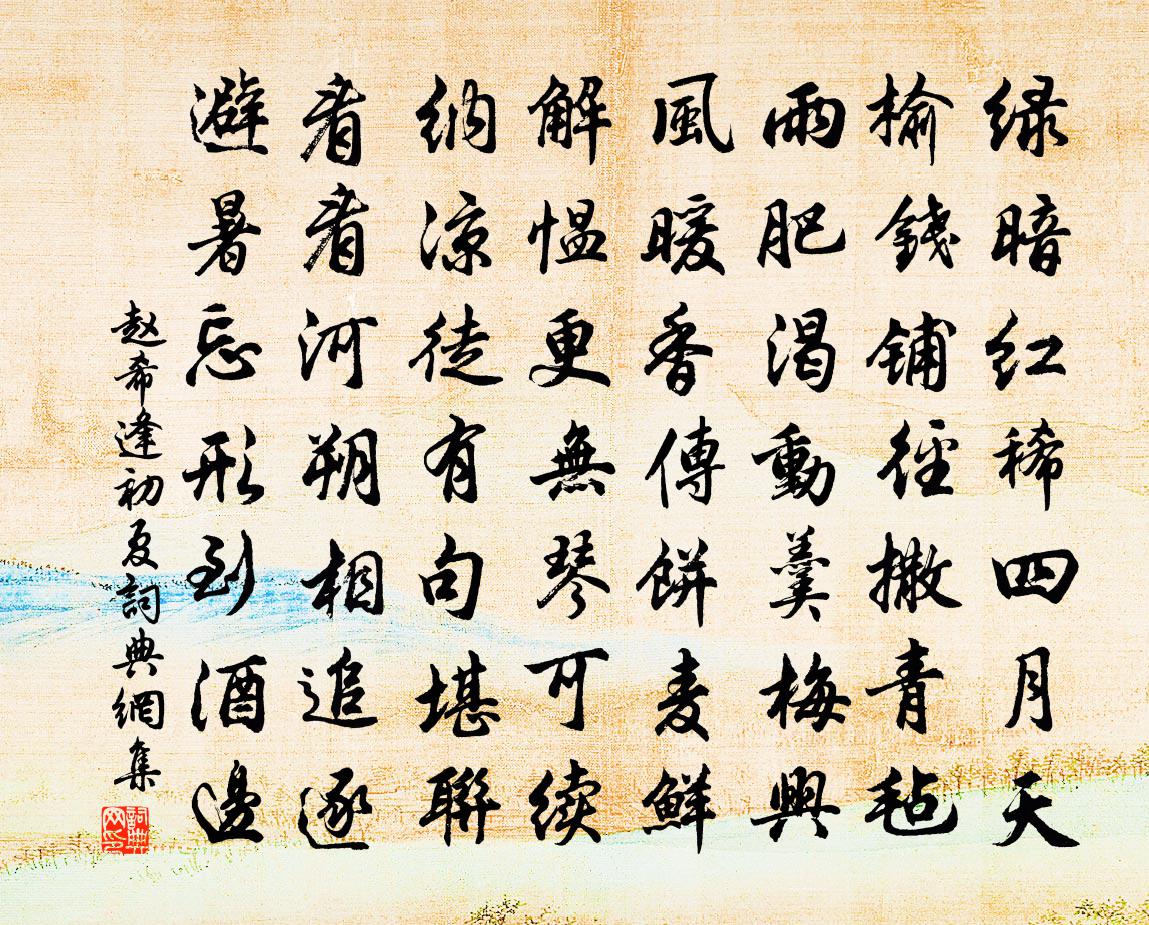 绿暗红稀四月天
榆錢铺徑撒青毡
雨肥渴動羹梅興
風暖香傳餅麦鮮
解愠更無琴可续
纳凉徒有句堪聯
看看河朔相追逐
避暑忘形到酒邊
赵希逢初夏詞典網集
詞典網印